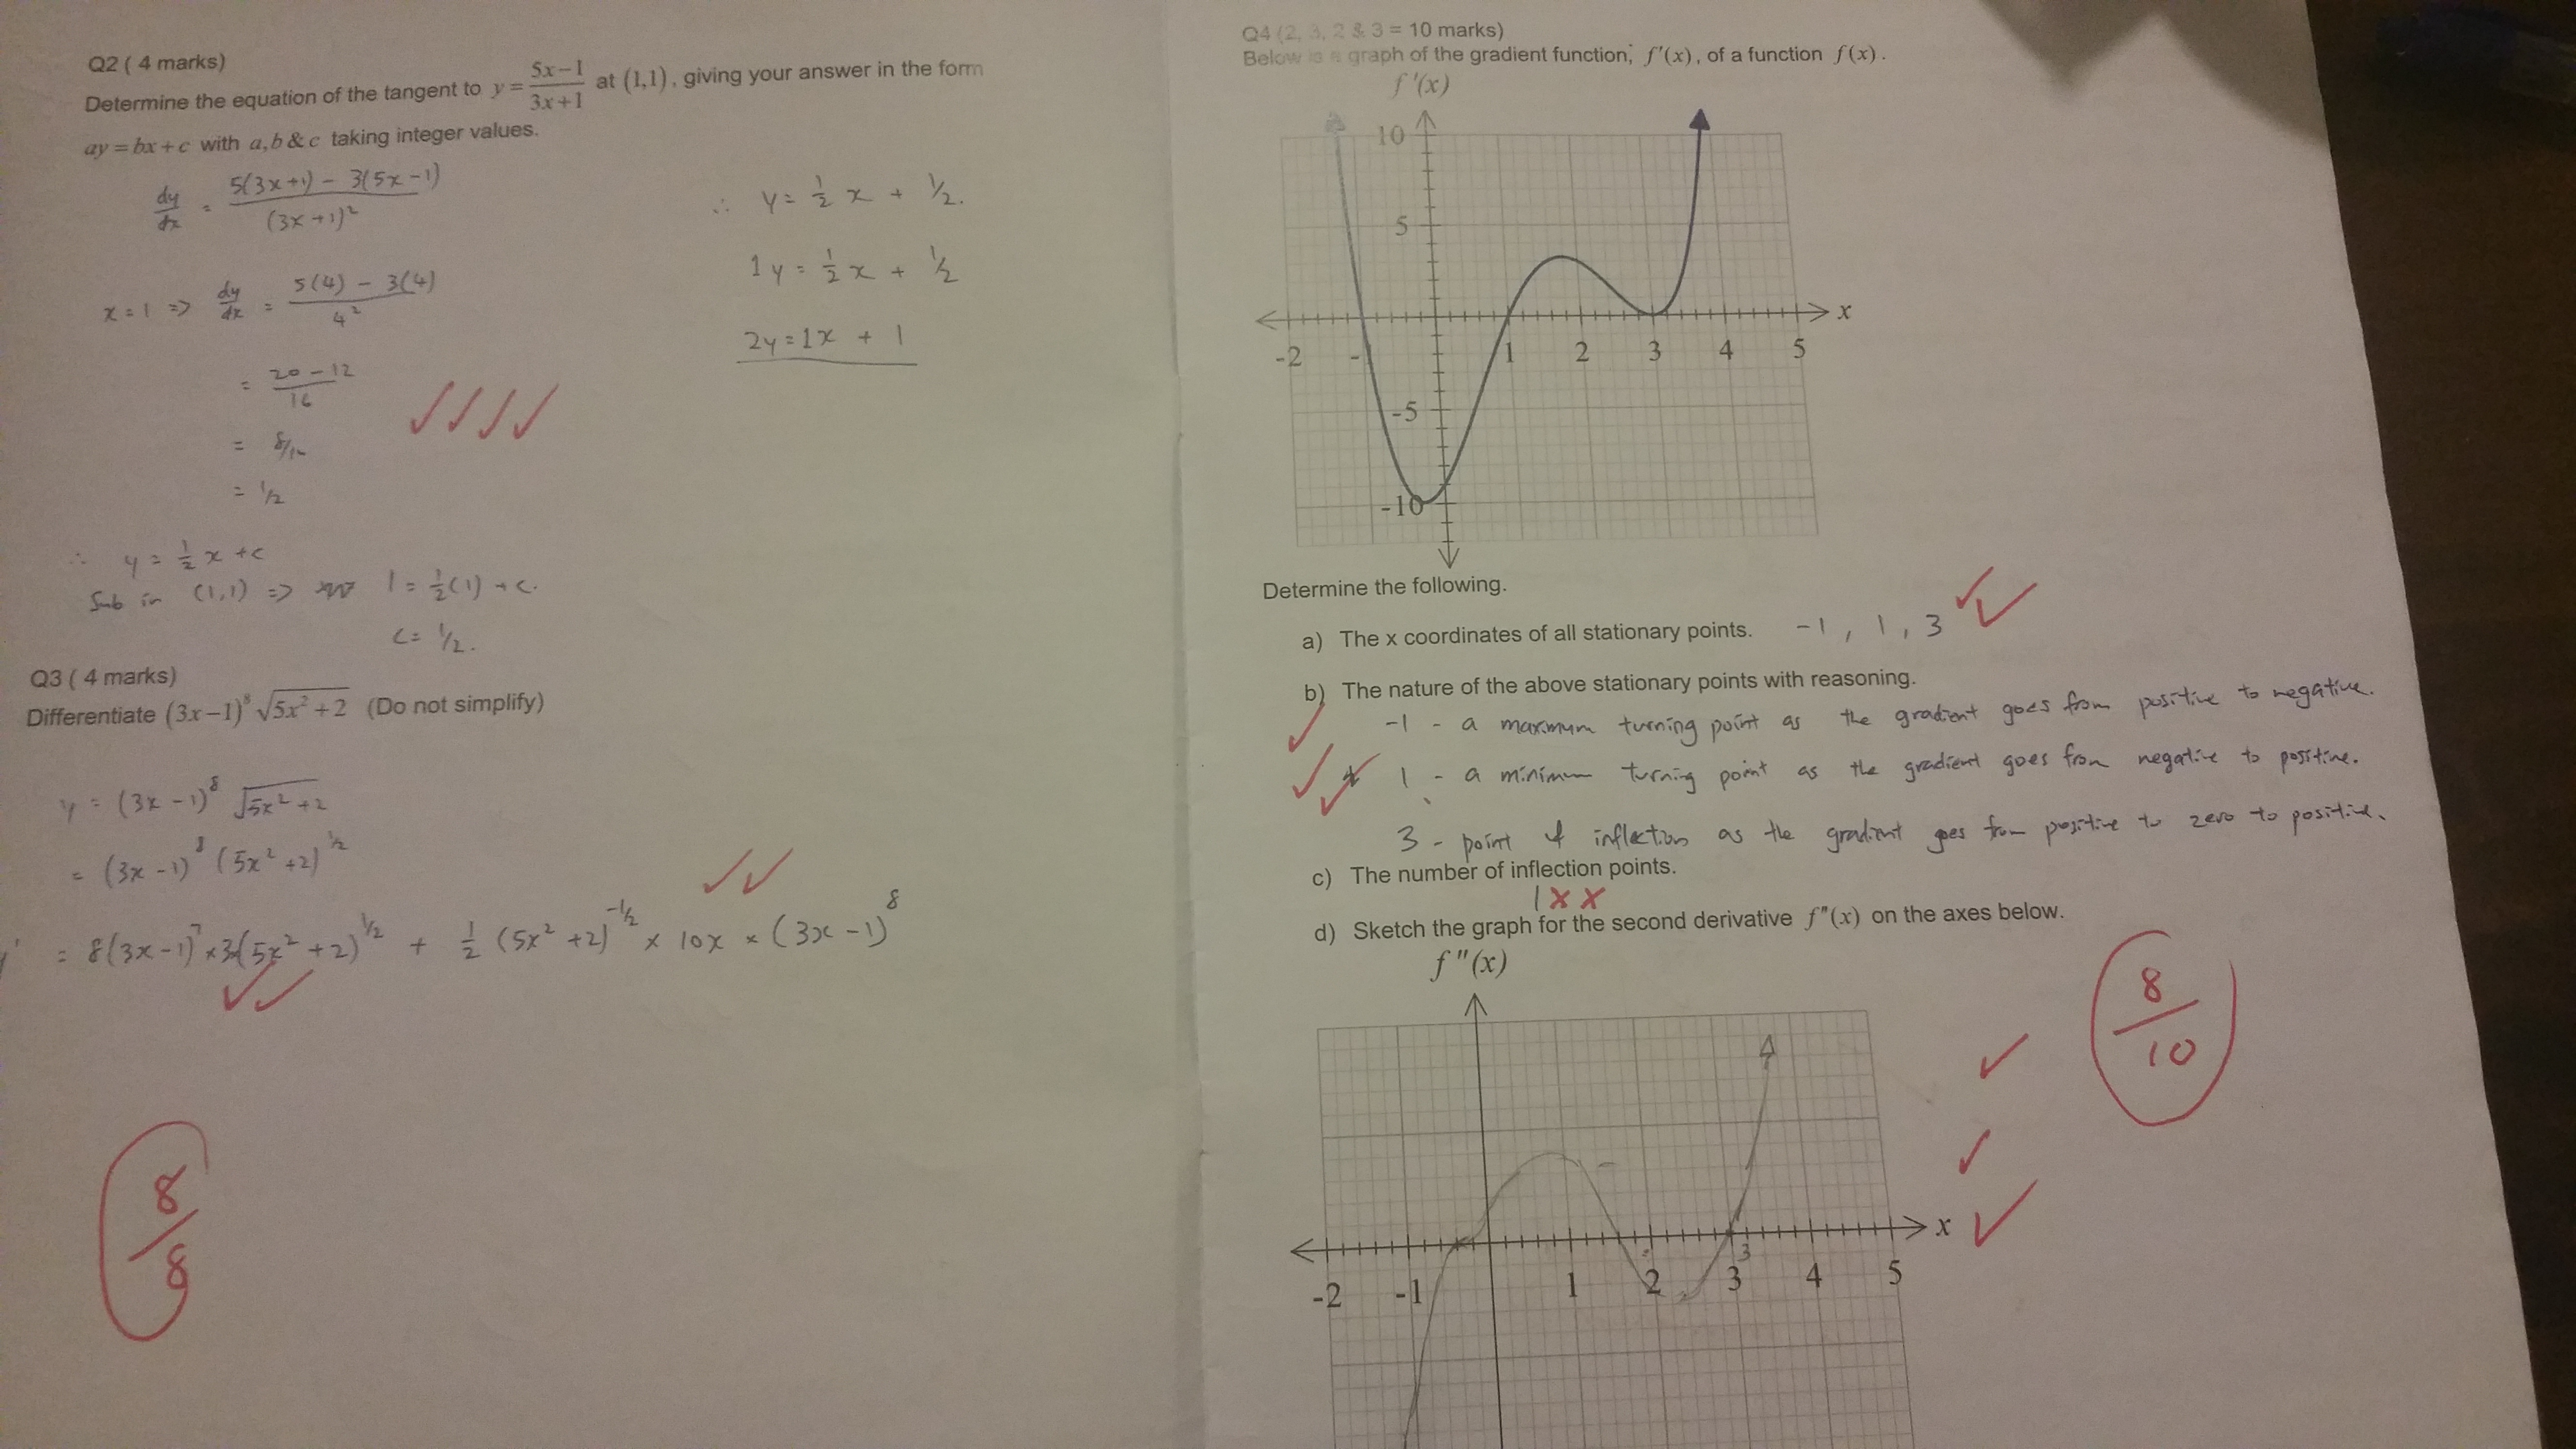 Q2 ( 4 marks)
Determine the equation of the tangent to y = (5x−1)/(3x+1) at (1,1), giving your answer in the form
ay = bx + c with a,b & c taking integer values.
dy/dx = (5(3x+1) − 3(5x−1))/(3x+1)²
x = 1 ⇒ dy/dx = (5(4) − 3(4))/4²
= (20 − 12)/16
= 8/16
= 1/2
∴ y = ½ x + c
Sub in (1,1) ⇒ 1 = ½(1) + c.
c = ½.
∴ y = ½ x + ½.
1y = ½ x + ½
2y = 1x + 1
Q3 ( 4 marks)
Differentiate (3x−1)⁸ √(5x²+2) (Do not simplify)
y = (3x−1)⁸ √(5x²+2)
= (3x−1)⁸ (5x²+2)^½
y' = 8(3x−1)⁷ ×3(5x²+2)^½ + ½ (5x²+2)^−½ × 10x × (3x−1)⁸
8/8
Q4 (2, 3, 2 & 3 = 10 marks)
Below is a graph of the gradient function, f'(x), of a function f(x).
f'(x)
10
5
x
-2 - 1 2 3 4 5
-5
-10
Determine the following.
a) The x coordinates of all stationary points. −1, 1, 3
b) The nature of the above stationary points with reasoning.
-1 - a maximum turning point as the gradient goes from positive to negative.
1 - a minimum turning point as the gradient goes from negative to positive.
3 - point of inflection as the gradient goes from positive to zero to positive.
c) The number of inflection points.
1 x x
d) Sketch the graph for the second derivative f"(x) on the axes below.
f"(x)
8/10
x
3
-2 -1 1 2 3 4 5